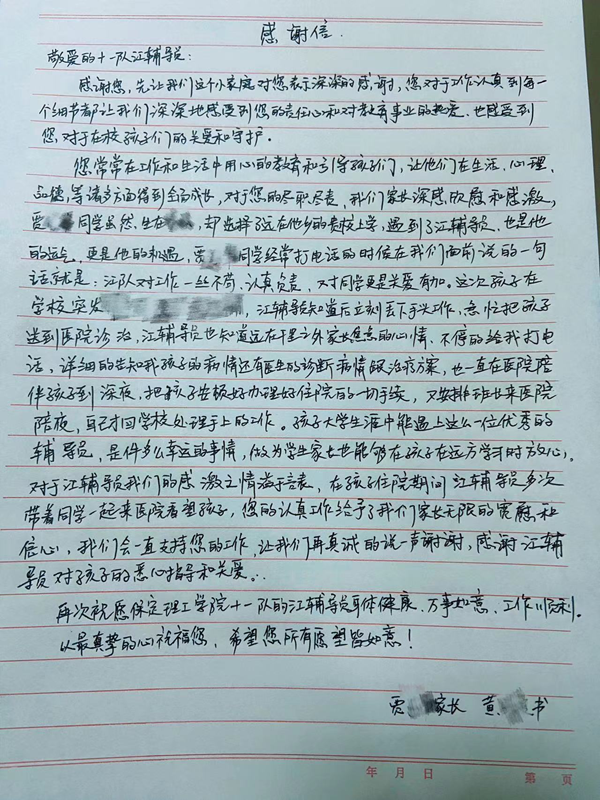 感谢信.
敬爱的十一队江辅导员:
感谢您,先让我们这个小家庭对您表示深深的感谢,您对于工作认真到每一
个细节都让我们深深地感受到您的责任心和对教育事业的热爱、也感受到
您,对于在校孩子们的关爱和守护。
您常常在工作和生活中用心的教育和引导孩子们,让他们在生活、心理、
品德,等诸多方面得到全面成长,对于您的尽职尽责,我们家长深感欣慰和感激,
贾 同学虽然,生在 ,却选择了远在他乡的贵校上学,遇到了江辅导员、也是他
的运气,更是他的机遇,贾 同学经常打电话的时候在我们面前说的一句
话就是:江队对工作一丝不苟、认真负责,对同学更是关爱有加。这次孩子在
学校突发 ,江辅导员知道后立刻丢下手头工作,急忙把孩子
送到医院诊治,江辅导员也知道远在千里之外家长焦急的心情、不停的给我打电
话,详细的告知我孩子的病情还有医生的诊断病情跟治疗方案,也一直在医院陪
伴孩子到深夜,把孩子安板好办理好住院的一切手续,又安排班长来医院
陪夜,自己才回学校处理手上的工作。孩子大学生涯中能遇上这么一位优秀的
辅导员,是件多么幸运的事情,做为学生家长也能够在孩子在远方学习时放心。
对于江辅导员我们的感激之情溢于言表,在孩子住院期间江辅导员多次
带着同学一起来医院看望孩子,您的认真工作给予了我们家长无限的宽慰和
信心,我们会一直支持您的工作,让我们再真诚的说一声谢谢,感谢江辅
导员对孩子的悉心指导和关爱。
再次祝愿保定理工学院十一队的江辅导员身体健康、万事如意、工作顺利。
以最真挚的心祝福您,希望您所有愿望皆如意!
贾 家长 黄 书
年 月 日 第 页